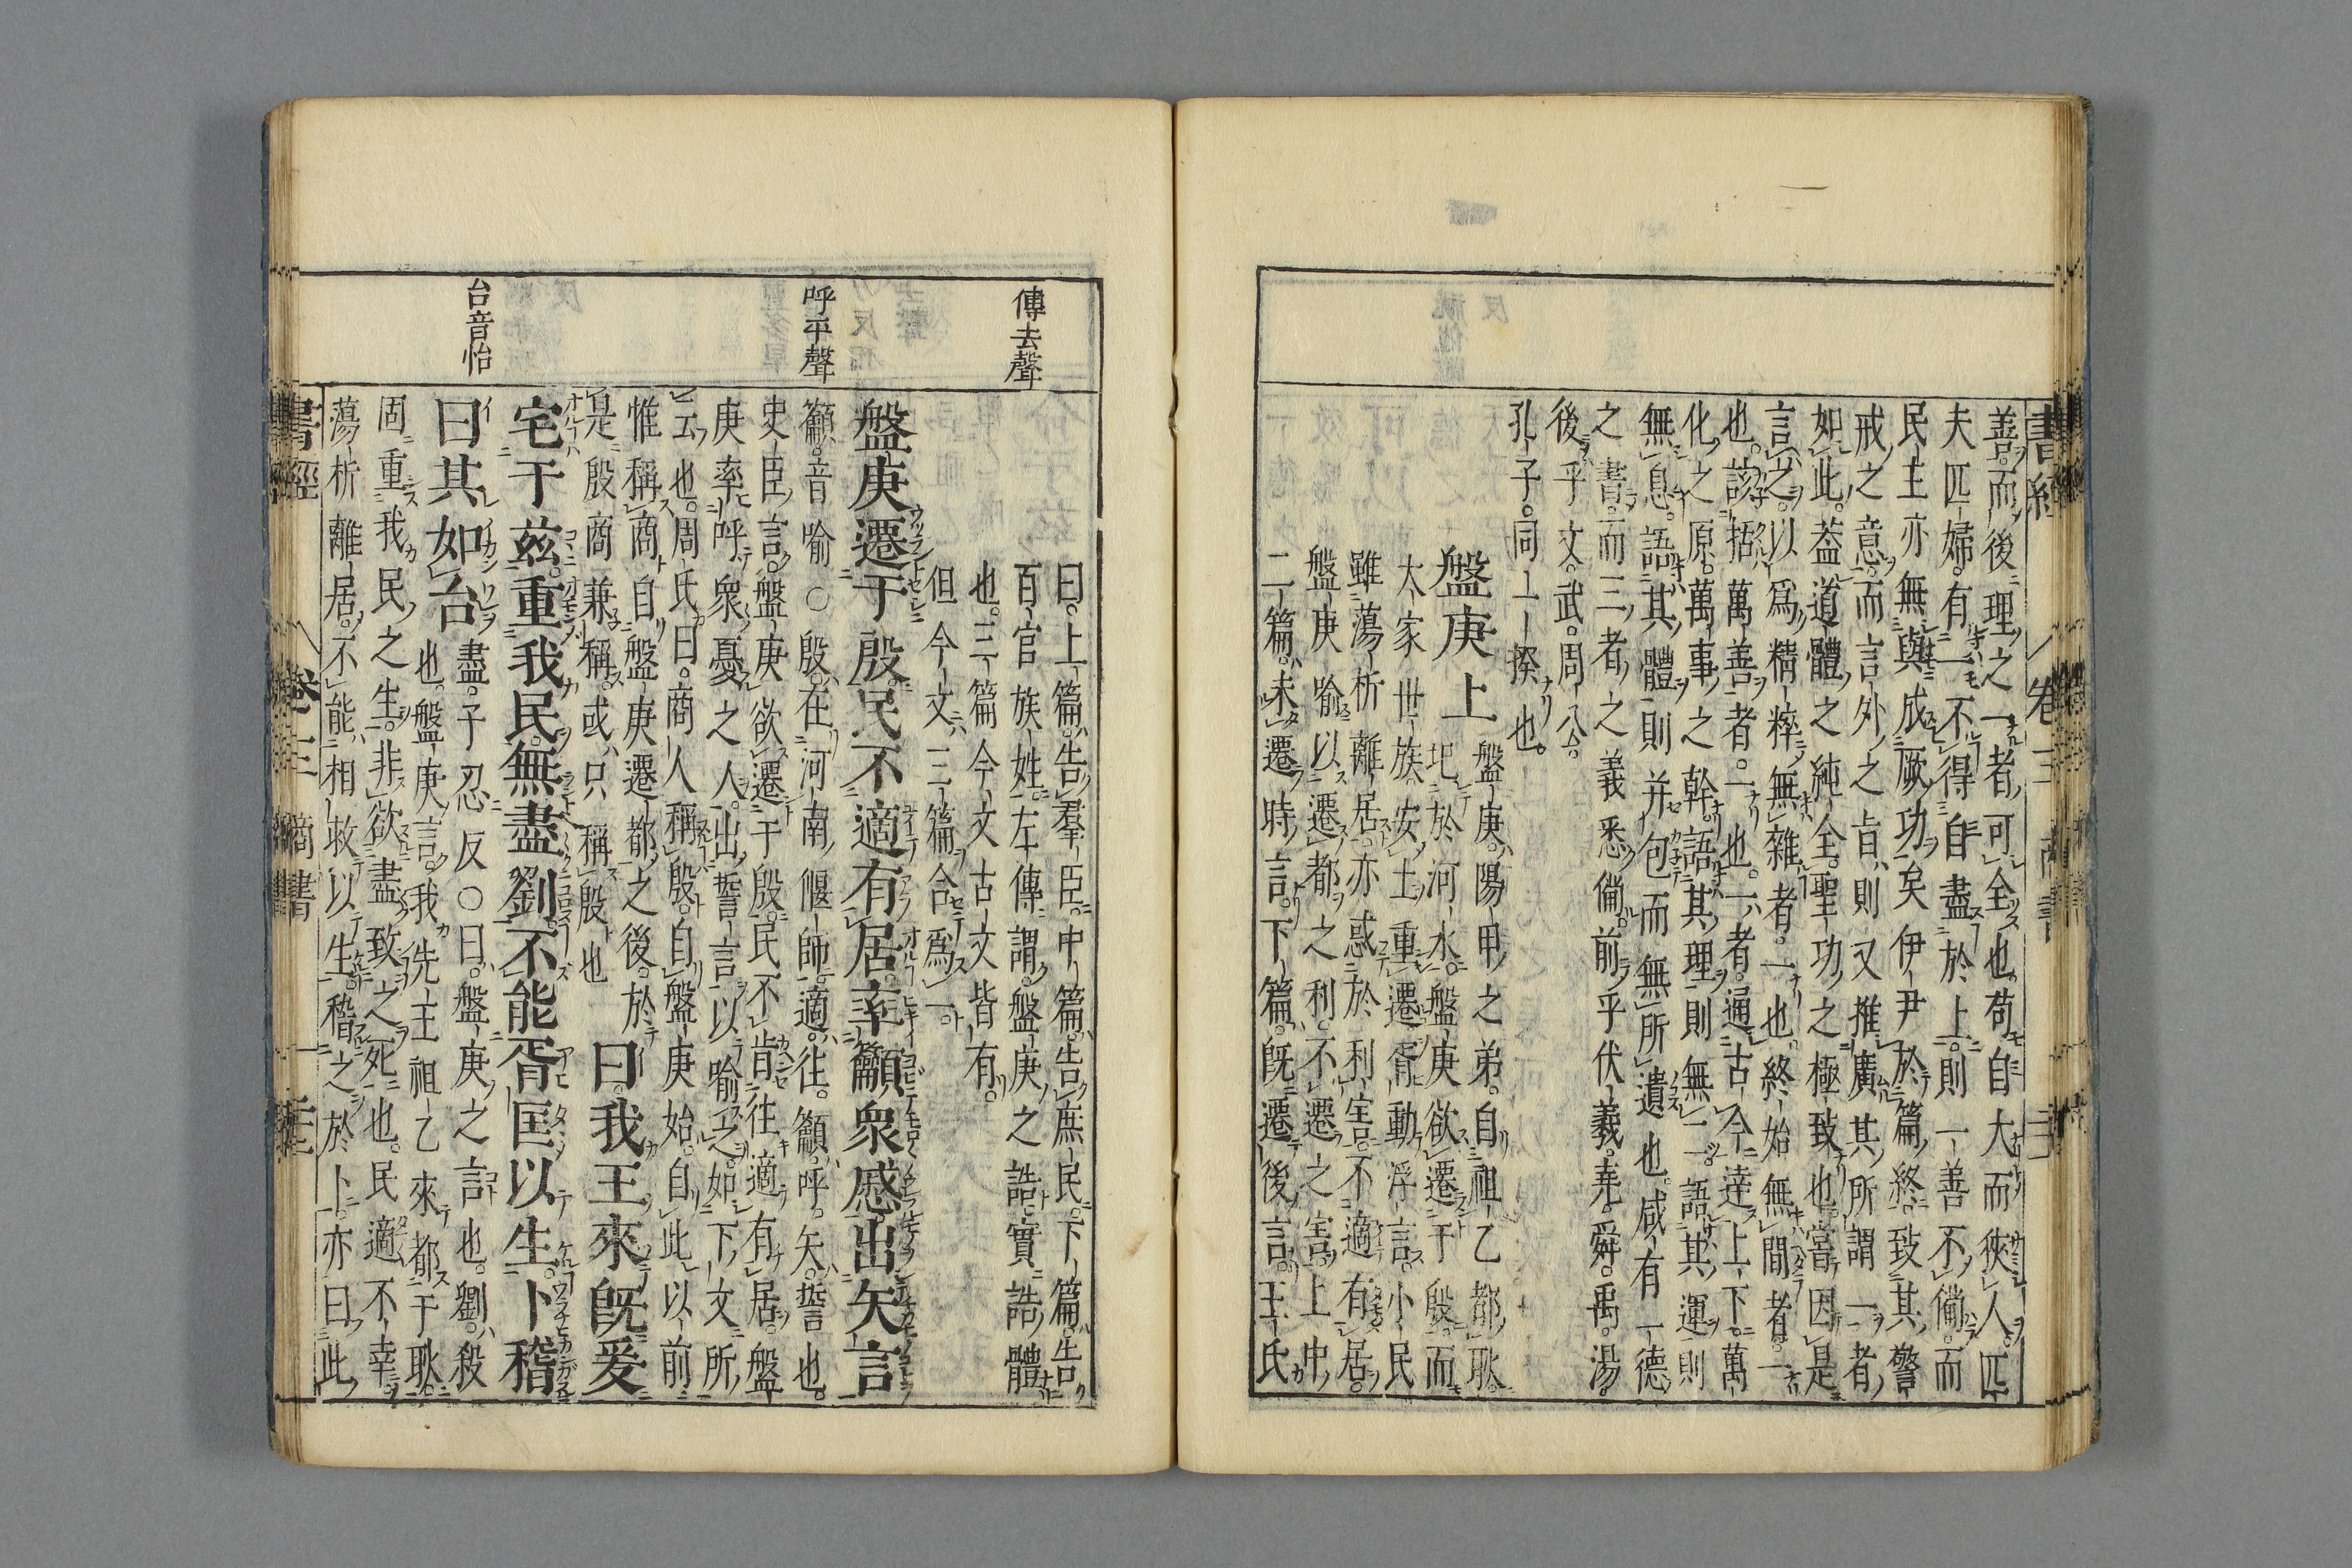 善而後理之一者可全也苟自大而狹人匹
夫匹婦有一不得自盡於上則一善不備而
民主亦無與成厥功矣伊尹於篇終致其警
戒之意而言外之旨則又推廣其所謂一者
如此蓋道體之純全聖功之極致也嘗因是
言之以爲精粹無雜者一也終始無間者一
也該括萬善者一也一者通古今達上下萬
化之原萬事之幹語其理則無二語其運則
無息語其體則并包而無所遺也咸有一德
之書而三者之義悉備前乎伏羲堯舜禹湯
後乎文武周公
孔子同一揆也
盤庚上
盤庚陽甲之弟自祖乙都耿
圯於河水盤庚欲遷于殷而
大家世族安土重遷胥動浮言小民
雖蕩析離居亦惑於利害不適有居
盤庚喻以遷都之利不遷之害上中
二篇未遷時言下篇既遷後言王氏
曰上篇告羣臣中篇告庶民下篇告
百官族姓左傳謂盤庚之誥實誥體
也三篇今文古文皆有
但今文三篇合爲一
傳去聲
盤庚遷于殷民不適有居率籲衆慼出矢言
籲音喻○殷在河南偃師適往籲呼矢誓也
呼平聲
史臣言盤庚欲遷于殷民不肯往適有居盤
庚率呼衆憂之人出誓言以喻之如下文所
云也周氏曰商人稱殷自盤庚始自此以前
惟稱商自盤庚遷都之後於
是殷商兼稱或只稱殷也
曰我王來既爰
宅于茲重我民無盡劉不能胥匡以生卜稽
曰其如台
盡子忍反○曰盤庚之言也劉殺
也盤庚言我先王祖乙來都于耿
台音怡
固重我民之生非欲盡致之死也民適不幸
蕩析離居不能相救以生稽之於卜亦曰此
書經
卷三
商書